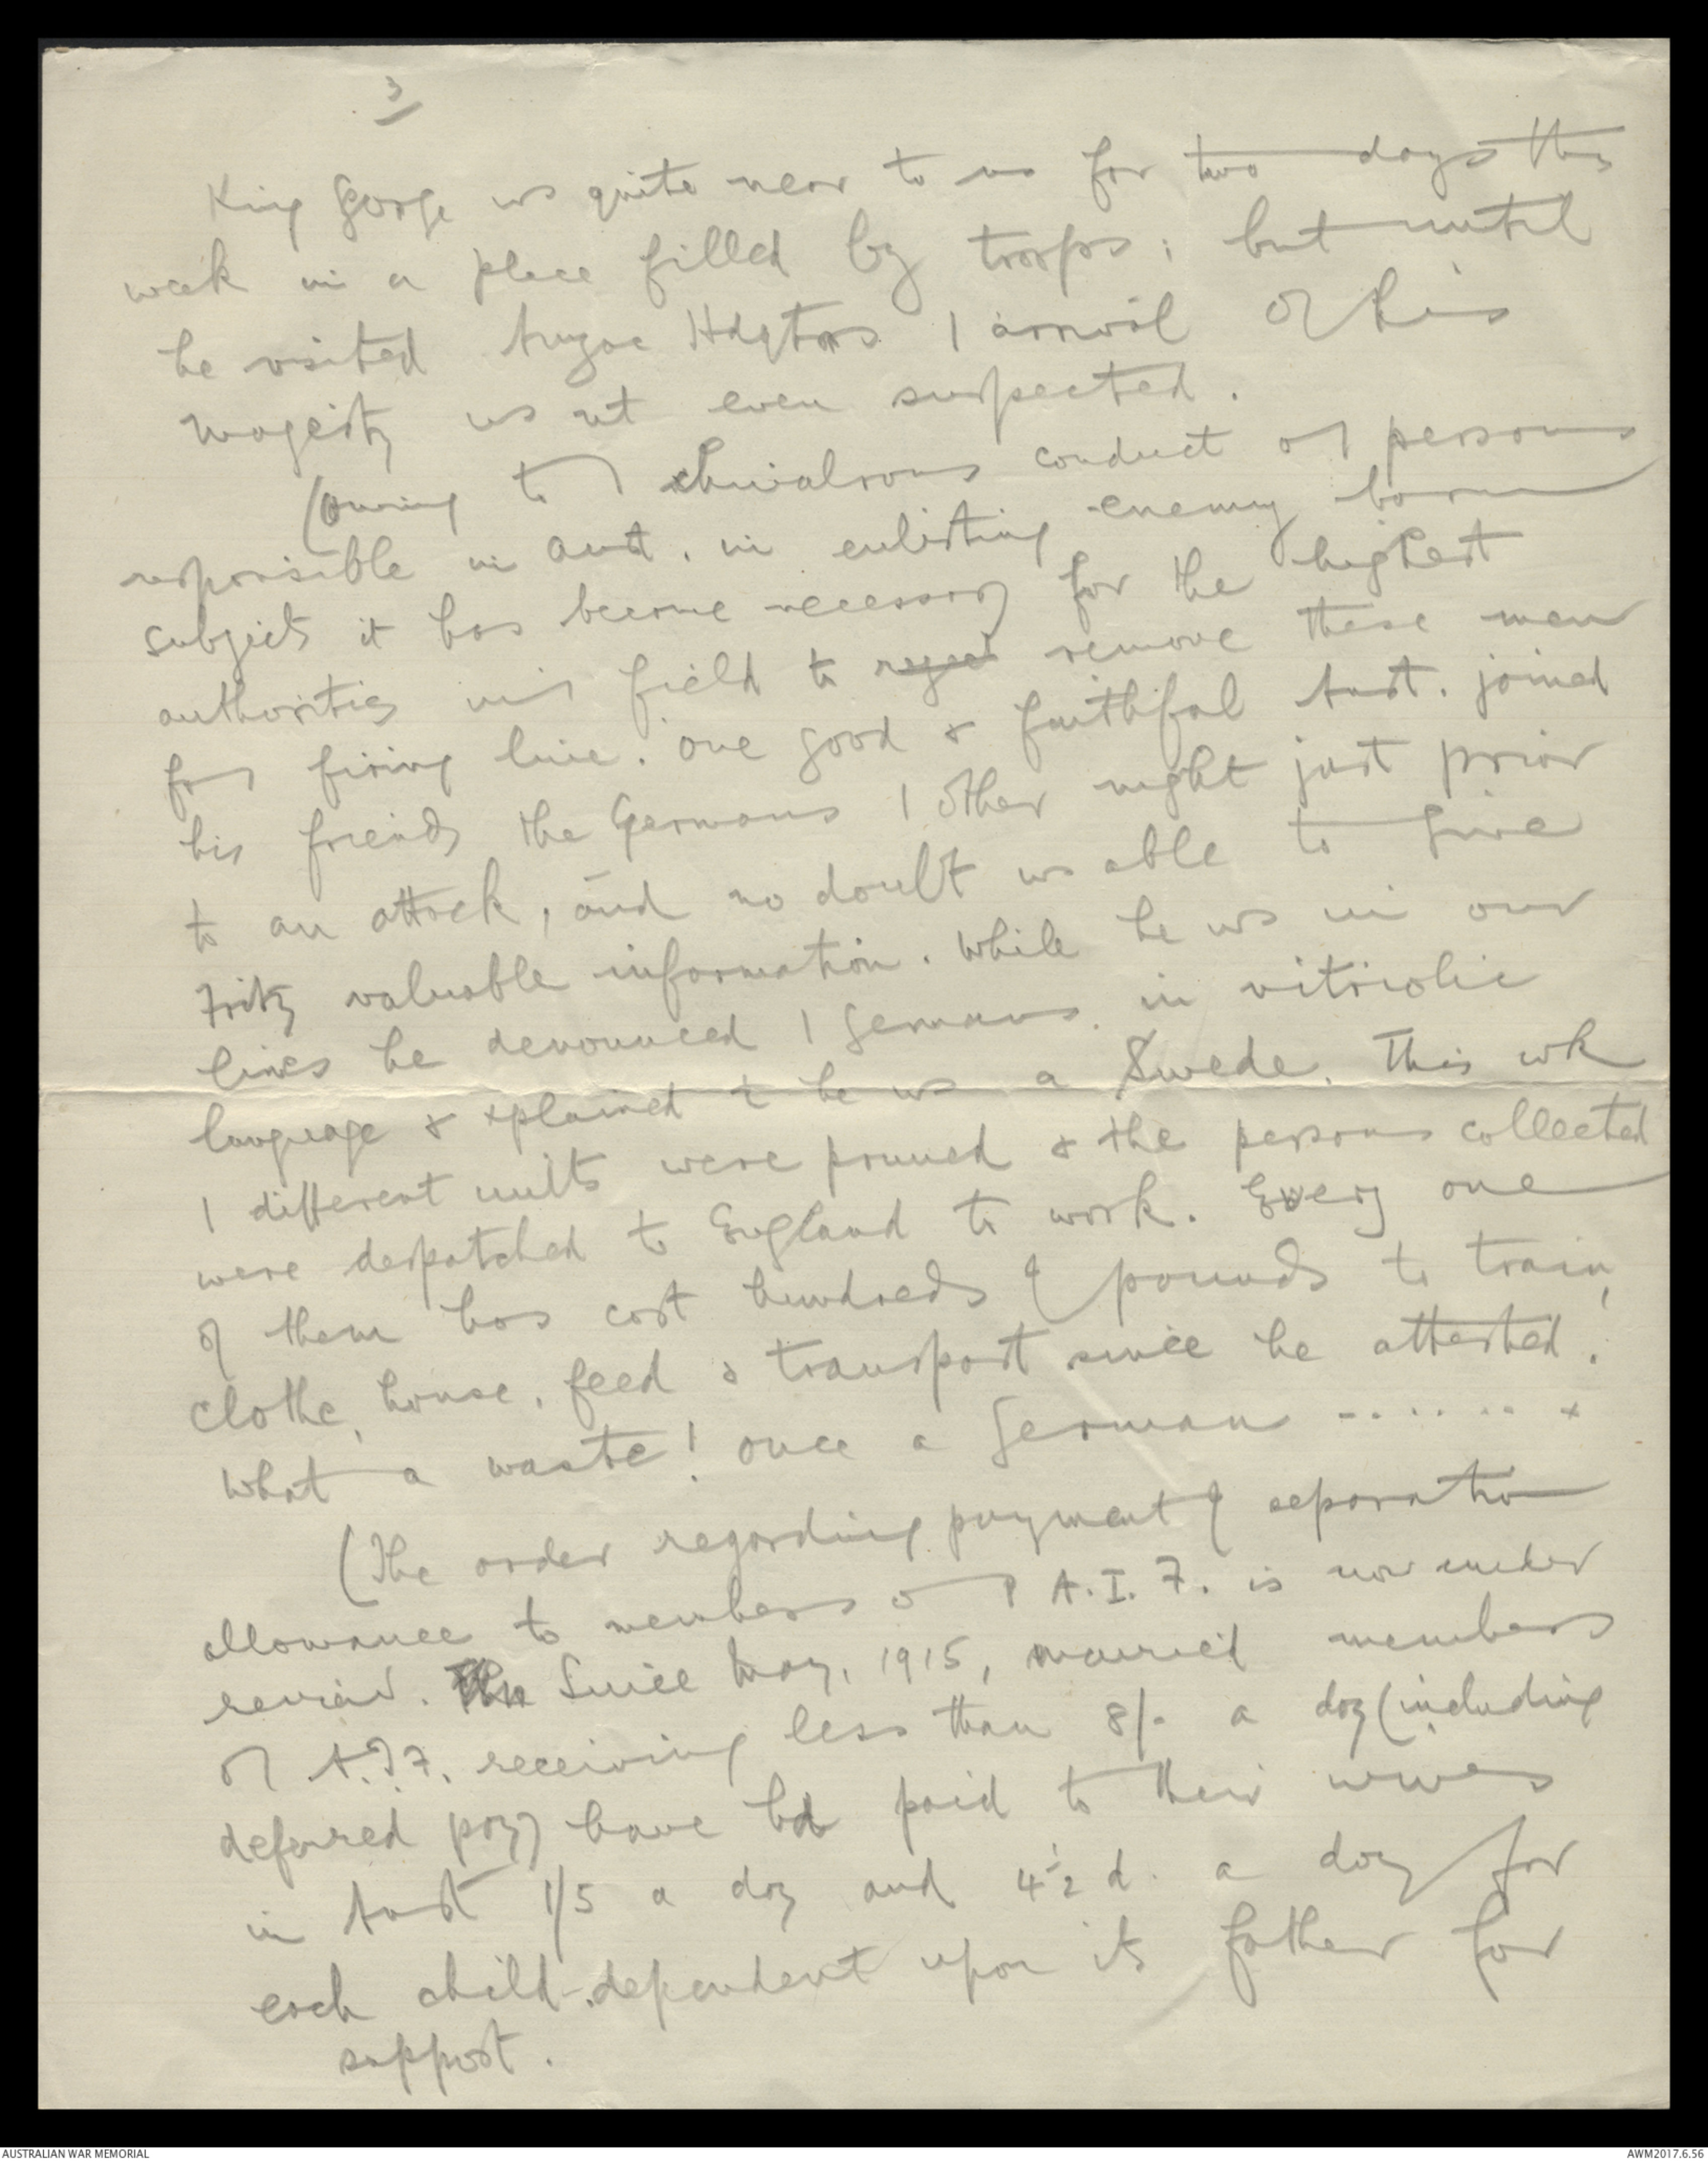 3
King George ws quite near to us for two days this
week in a place filled by troops; but until
he visited Anzac Hdqtrs / arrival of his
Majesty ws nt even suspected.
(Owing to / chivalrous conduct of / persons
responsible in Aust. in enlisting enemy born
subjects it has become necessary for the highest
authorities in / field to reject remove these men
fm / firing line. One good & faithful Aust. joined
his friends the Germans / other night just prior
to an attack, and no doubt ws able to give
Fritz valuable information. While he ws in our
lines he denounced / Germans in vitriolic
language & xplained tt he ws a Swede. This wk
/ different units were pruned & the persons collected
were despatched to England to work. Every one
of them has cost hundreds of pounds to train,
clothe, house, feed & transport since he attested!
What a waste! Once a German ------- x
(The order regarding payment of separation
allowance to members of / A.I.F. is now under
review. The Since May, 1915, married members
of A.I.F. receiving less than 8/- a day (including
deferred pay) have hd paid to their wives
in Aust 1/5 a day and 4½ d. a day for
each child dependent upon its father for
support.
AUSTRALIAN WAR MEMORIAL
AWM2017.6.56